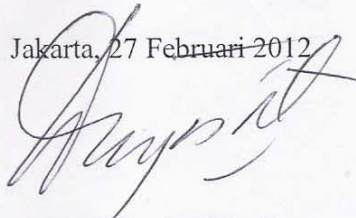 Jakarta, 27 Februari 2012